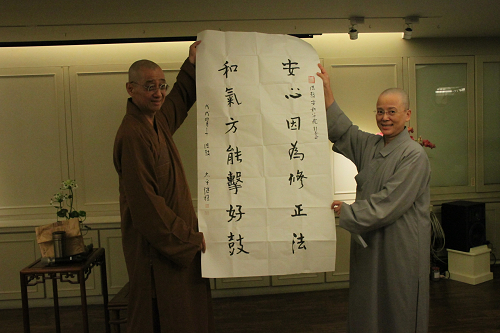 安心因為修正法
和氣方能擊好鼓